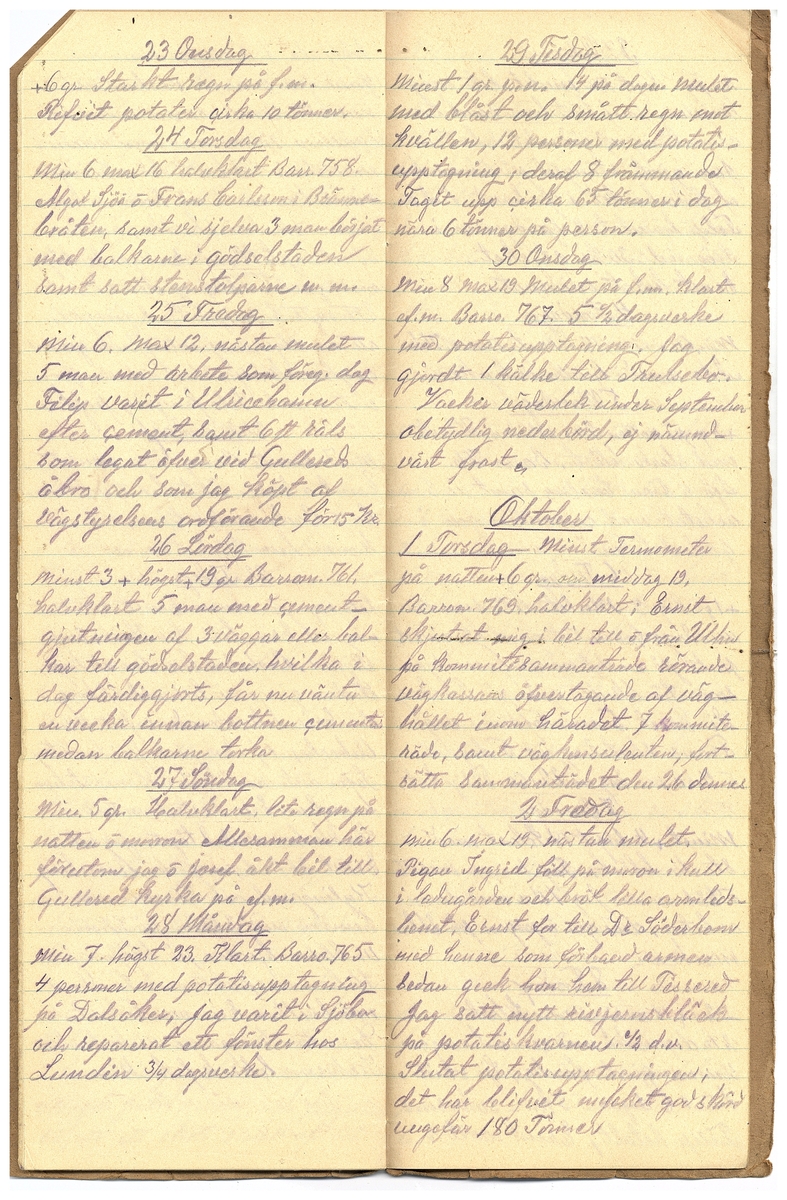 23 Onsdag
+6 gr. Starkt regn på f.m.
Rifvit potater cirka 10 tönner.
24 Torsdag
Min 6 max 16 halvklart Barr. 758.
Algot Sjöö o Frans Carlsson i Bränne-
bråten, samt vi sjelva 3 man börjat
med balkarne i gödselstaden
samt satt stenstolparne m. m.
25 Fredag
Min 6. Max 12, nästan mulet
5 man med arbete som föreg. dag
Filip varit i Ulricehamn
efter cement, samt 6 st räls
som legat öfver vid Gullered
åbro och som jag köpt af
vägstyrelsens ordförande för 15 kr.
26 Lördag
Minst 3 + högst + 19 gr Barrom. 761,
halvklart 5 man med cement-
gjutningen af 3 väggar eller bal-
kar till gödselstaden, hvilka i
dag färdiggjorts, får nu vänta
en vecka innan bottnen cementeras
medan balkarne torka
27 Söndag
Min. 5 gr. Halvklart, lite regn på
natten o moron Allesamman här
förutom jag o Josef åkt bil till
Gullered kyrka på ef.m.
28 Måndag
Min 7. högst 23. Klart. Barro. 765
4 personer med potatisupptagning
på Dalsåker, jag varit i Sjöbo
och reparerat ett fönster hos
Lundin 3/4 dagsverke.
29 Tisdag
Minst 1 gr p.n. 14 på dagen mulet
med blåst och smått regn mot
kvällen, 12 personer med potatis-
upptagning, deraf 8 främmande
Taget upp cirka 65 tönner i dag
nära 6 tönner på person.
30 Onsdag
Min 8 Max 19 Mulet på f.m. klart
ef.m. Barro. 767. 5 1/2 dagsverke
med potatisupptagning. Jag
gjordt 1 kälke till Trulsebo.
Vacker väderlek under September
obetydlig nederbörd, ej nämnd-
värt frost.
Oktober
1 Torsdag Minst Termometer
på natten +6 gr. om middag 19,
Barrom. 769, halvklart, Ernst
skjutsat mig i bil till o från Ulhn
på kommitésammanträde rörande
vägkassans öfvertagande af väg-
hållet inom häradet 7 kommite-
råde, samt vägkonsulenten, fort-
sätta sammanträdet den 26 dennes
2 Fredag
Min 6. max 19, nästan mulet.
Pigan Ingrid föll på moron i kull
i ladugården och bröt lilla armleds-
benet, Ernst for till Dr Söderbom
med henne som förband armen
sedan geck hon hem till Tissered
Jag satt nytt rivjernsbläck
på potatiskvarnen. 1/2 d.v.
Slutat potatisupptagningen,
det har blifvit mycket god skörd
ungefär 180 Tönner